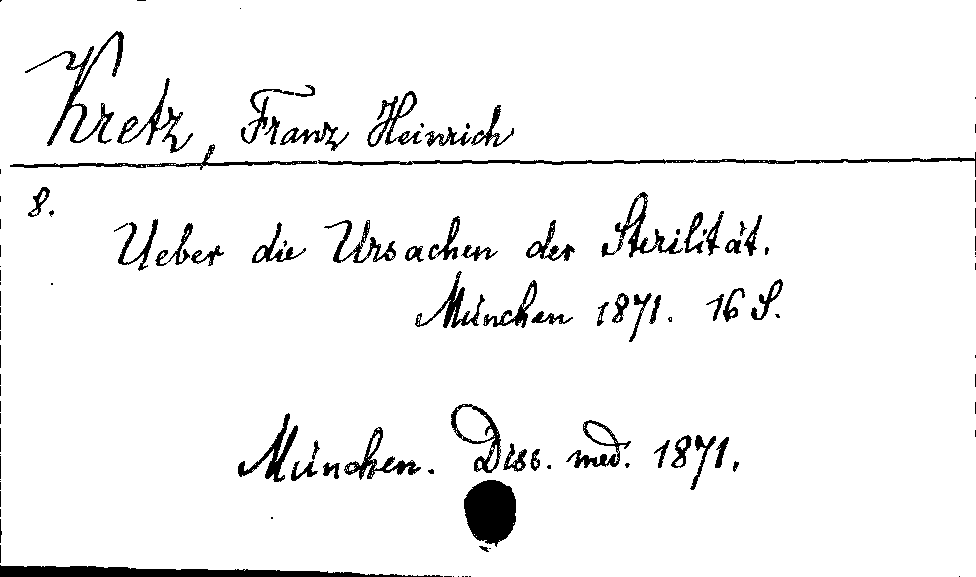 Kretz, Franz Heinrich
8.
Ueber die Ursachen der Sterilität.
München 1871. 16 S.
München. Diss. med. 1871.